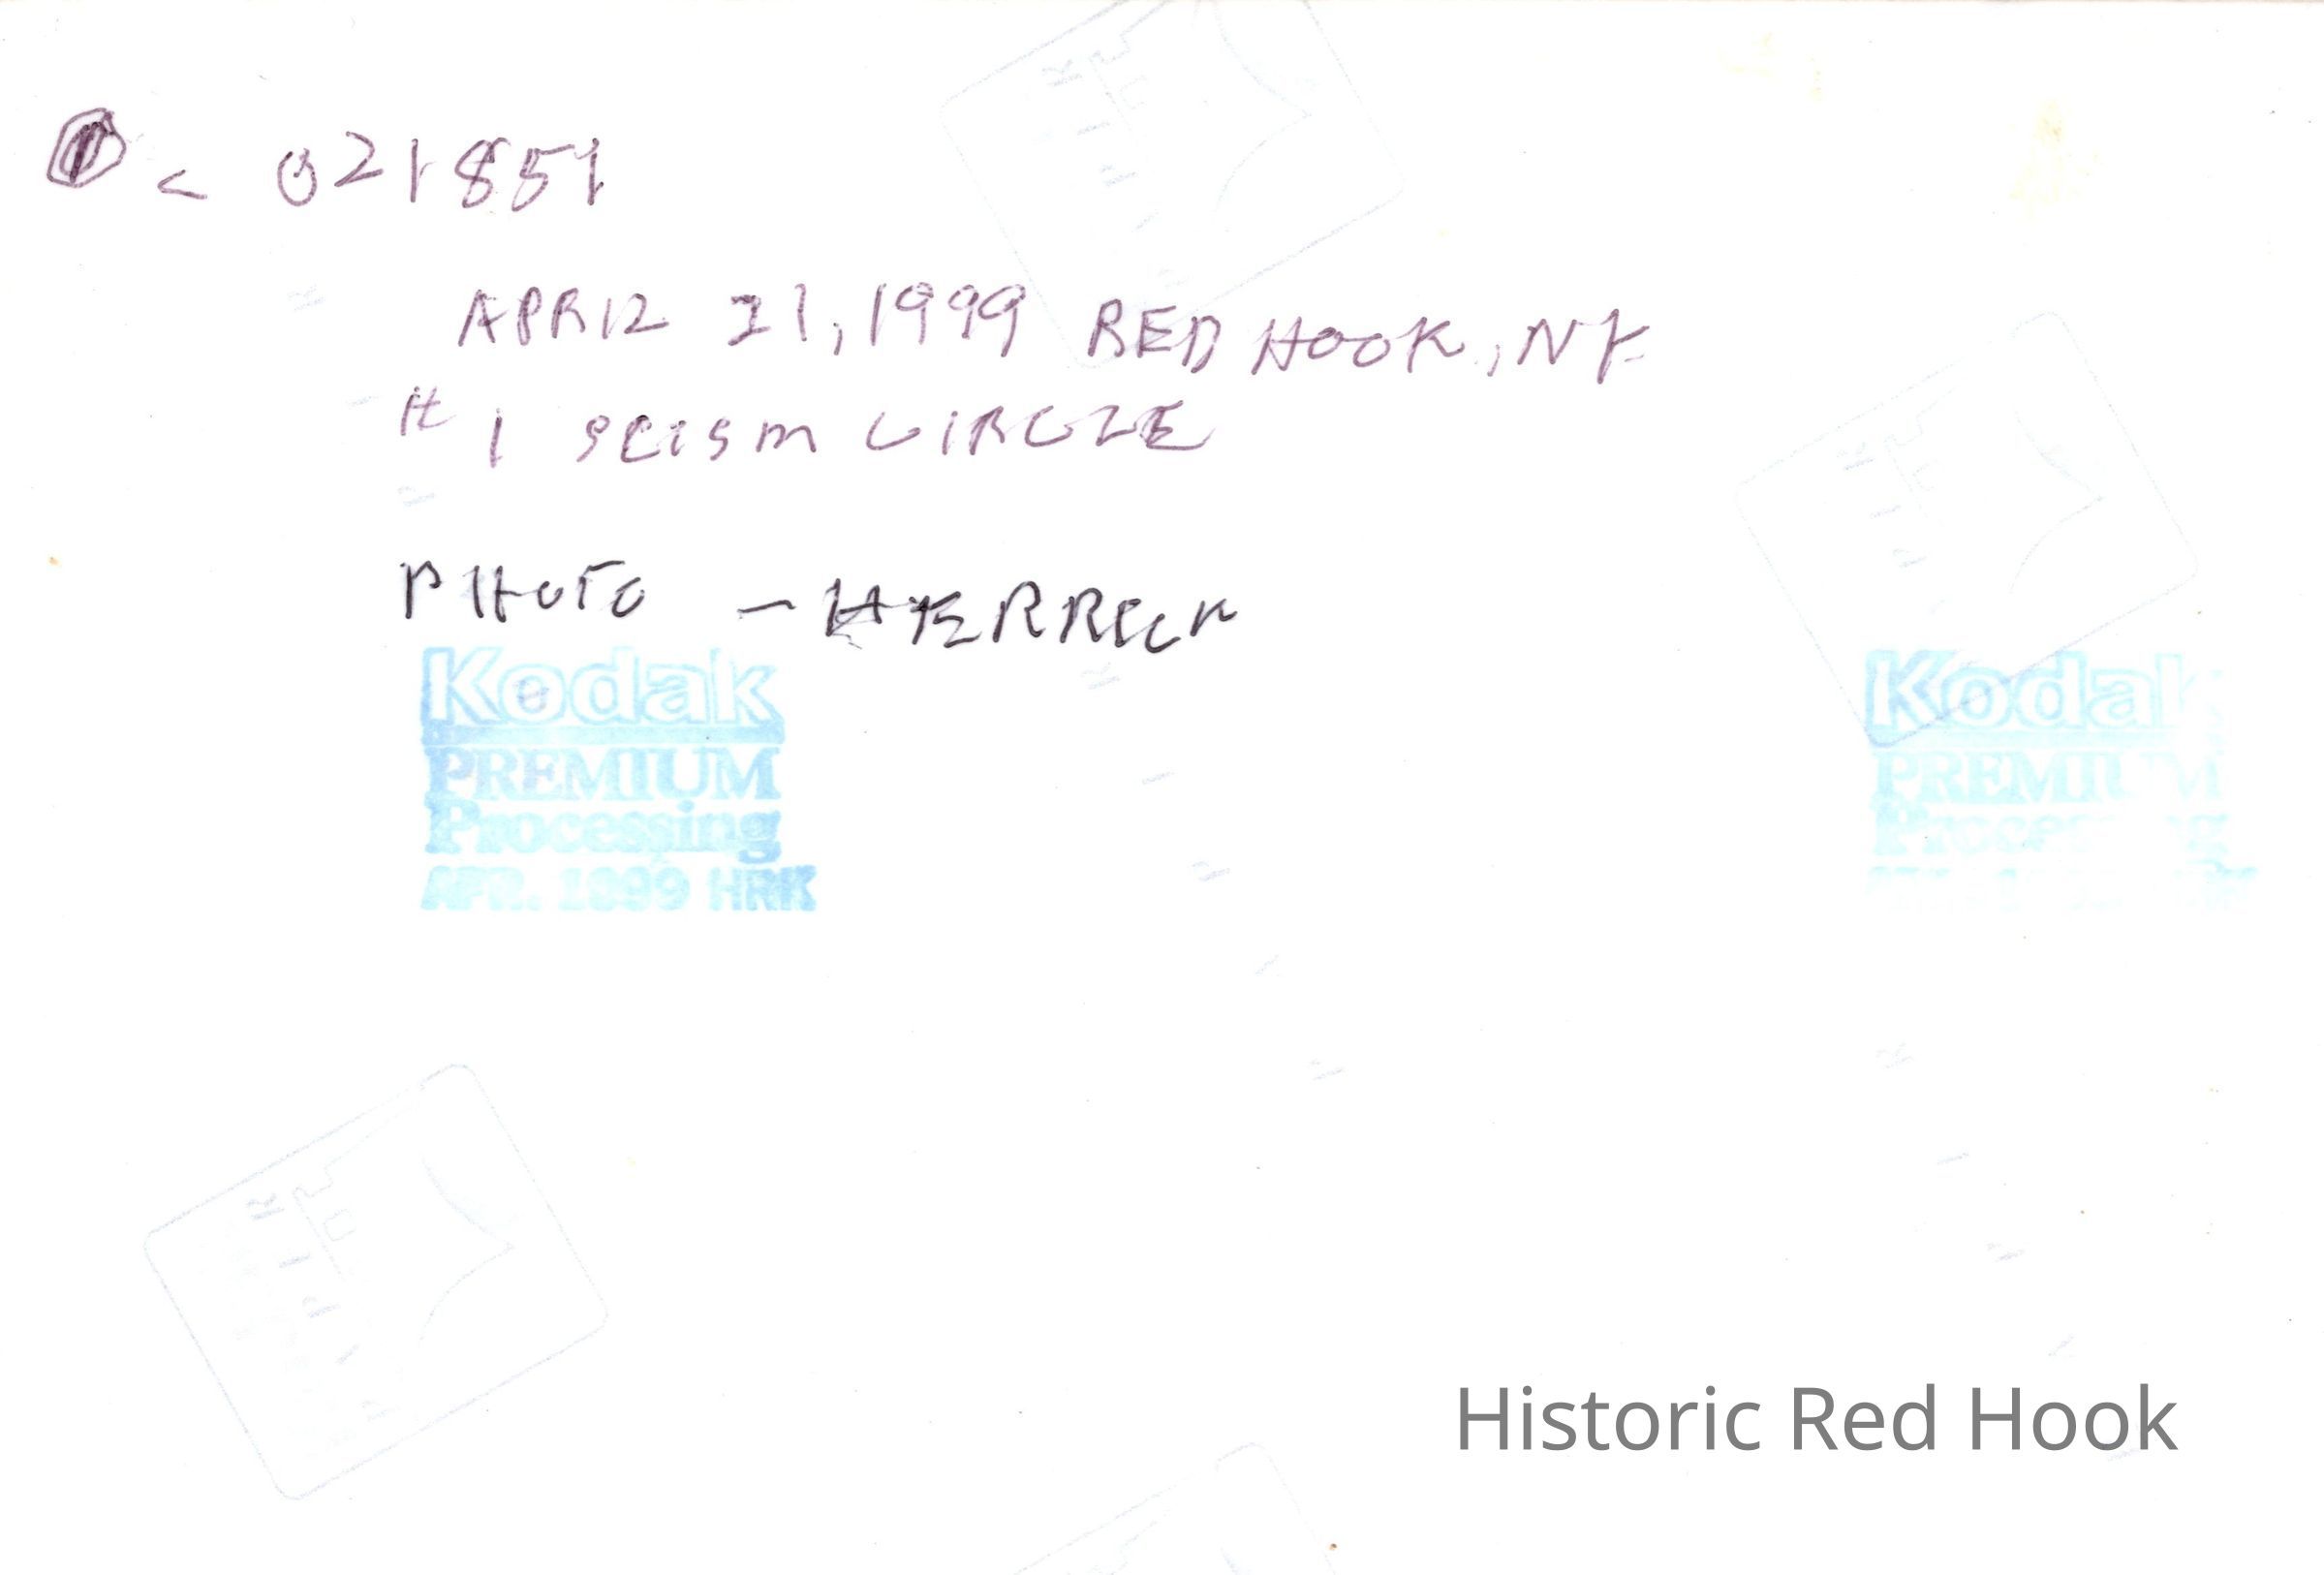 021851
APRIL 21, 1999 RED HOOK, NY
#1 SEISM CIRCLE
PHOTO - HERRICK
Kodak
PREMIUM
Processing
APR. 1999 HRK
Kodak
PREMIUM
Processing
Historic Red Hook